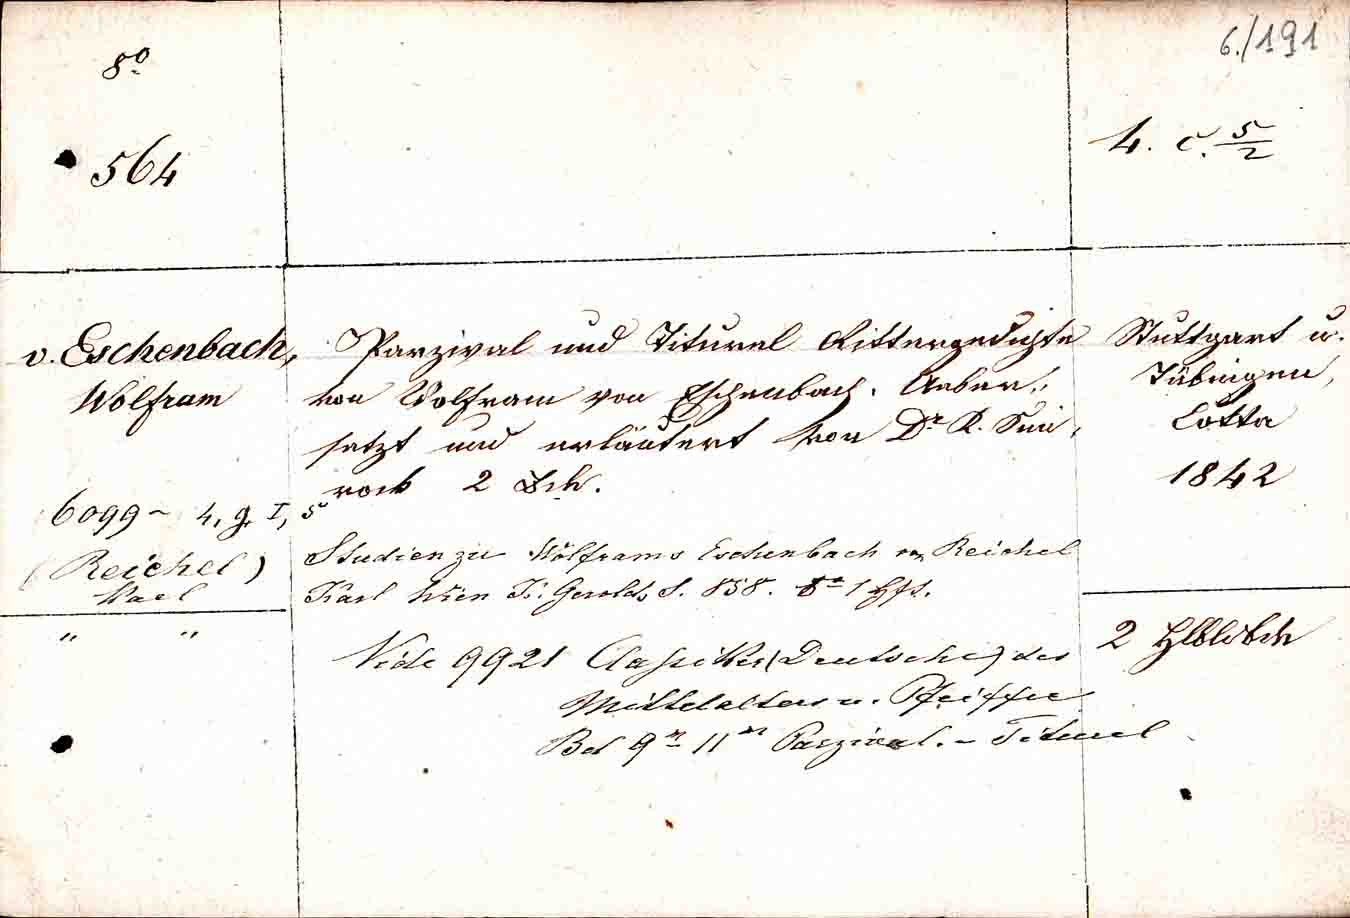 6./191
8º
564
4. c. 5/2
v. Eschenbach,
Wolfram
Parzival und Titurel Rittergedichte
von Wolfram von Eschenbach. Ueber-
setzt und erläutert von Dr. K. Sim-
rock 2 Bde.
Stuttgart u.
Tübingen,
Cotta
1842
6099 - 4, g. I, 5
(Reichel)
Karl
Studien zu Wolframs Eschenbach von Reichel
Karl Wien K: Gerolds S. 858. 8º 1 Hft.
" "
Vide 9921 Classiker (Deutsche) des
Mittelalters v. Pfeiffer
Bd 9n 11n Parzival. - Titurel
2 Hlblbde